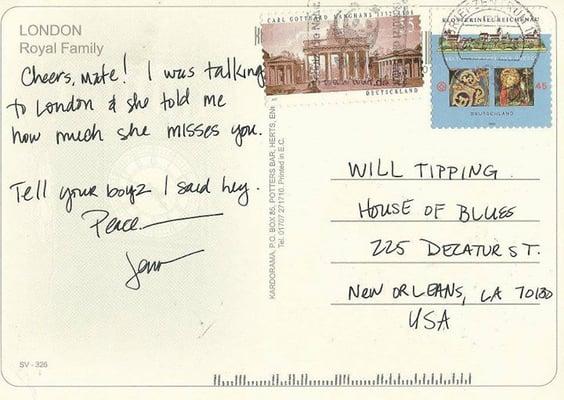 LONDON
Royal Family
Cheers, Mate! I was talking
to London & she told me
how much she misses you.
Tell your boyz I said hey.
Peace
Jenn
CARL GOTTHARD LANGHANS 1732-1808
DEUTSCHLAND
KLOSTERINSEL REICHENAU
45
DEUTSCHLAND
BRIEFZENTRUM
KARDORAMA, P.O. BOX 85, POTTERS BAR, HERTS, EN
Tel. 01707 271710. Printed in E.C.
WILL TIPPING
HOUSE OF BLUES
225 DECATUR ST.
NEW ORLEANS, LA 70130
USA
SV - 326